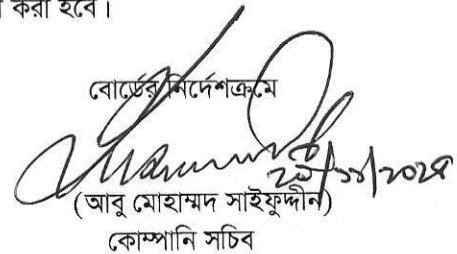 করা হবে।
বোর্ডের নির্দেশক্রমে
(আবু মোহাম্মদ সাইফুদ্দীন)
কোম্পানি সচিব